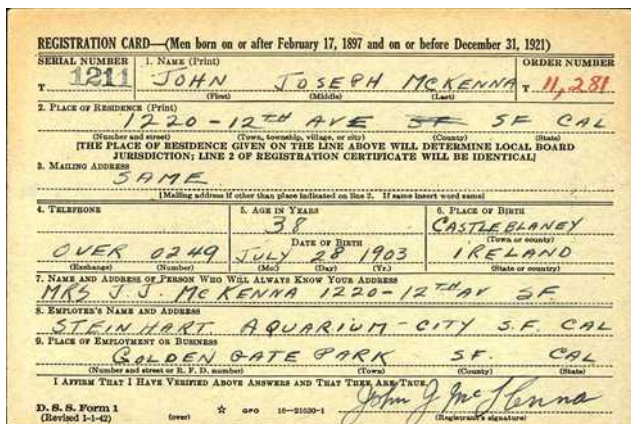 REGISTRATION CARD—(Men born on or after February 17, 1897 and on or before December 31, 1921)
SERIAL NUMBER 1. NAME (Print) ORDER NUMBER
T 1211 JOHN JOSEPH MCKENNA T 11,281
(First) (Middle) (Last)
2. PLACE OF RESIDENCE (Print)
1220-12TH AVE SF SF CAL
(Number and street) (Town, township, village, or city) (County) (State)
[THE PLACE OF RESIDENCE GIVEN ON THE LINE ABOVE WILL DETERMINE LOCAL BOARD
JURISDICTION; LINE 2 OF REGISTRATION CERTIFICATE WILL BE IDENTICAL]
3. MAILING ADDRESS
SAME
[Mailing address if other than place indicated on line 2. If same insert word same]
4. TELEPHONE 5. AGE IN YEARS 6. PLACE OF BIRTH
38 CASTLEBLANEY
DATE OF BIRTH (Town or county)
OVER 0249 JULY 28 1903 IRELAND
(Exchange) (Number) (Mo.) (Day) (Yr.) (State or country)
7. NAME AND ADDRESS OF PERSON WHO WILL ALWAYS KNOW YOUR ADDRESS
MRS J.J. MCKENNA 1220-12TH AV SF.
8. EMPLOYER'S NAME AND ADDRESS
STEINHART AQUARIUM-CITY S.F. CAL
9. PLACE OF EMPLOYMENT OR BUSINESS
GOLDEN GATE PARK SF. CAL
(Number and street or R. F. D. number) (Town) (County) (State)
I AFFIRM THAT I HAVE VERIFIED ABOVE ANSWERS AND THAT THEY ARE TRUE.
John J McKenna
D. S. S. Form 1
(Revised 1-1-42) (over) ☆ GPO 16-21630-1 (Registrant's signature)